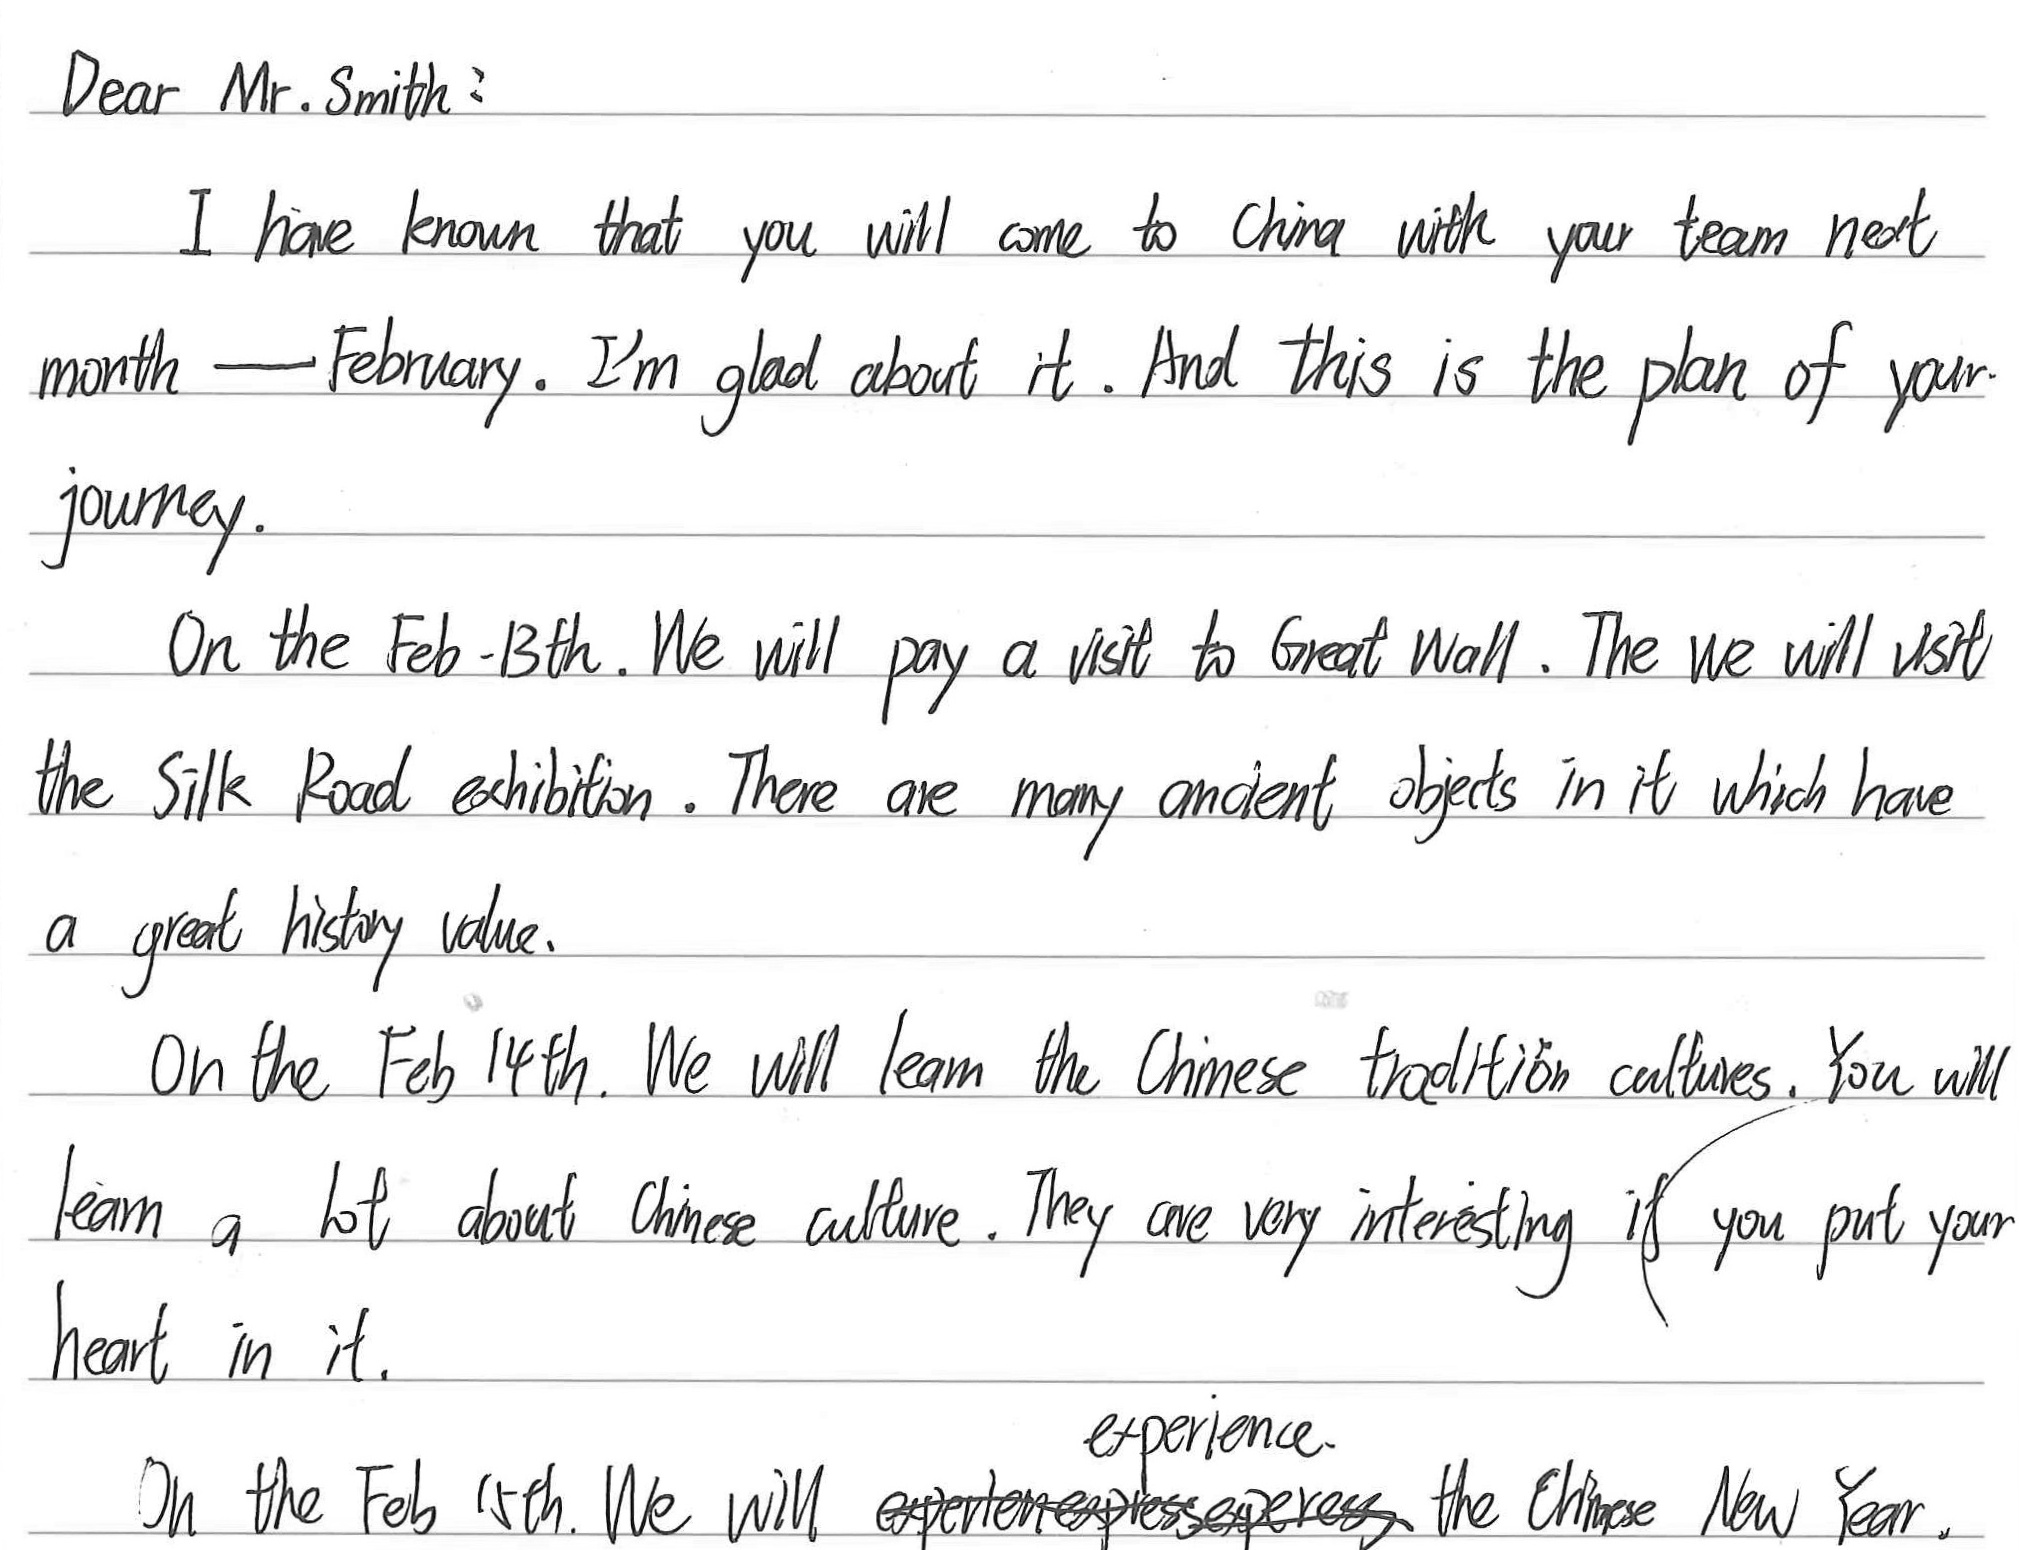 Dear Mr. Smith:
I have known that you will come to China with your team next
month — February. I'm glad about it. And this is the plan of your
journey.
On the Feb-13th. We will pay a visit to Great Wall. The we will visit
the Silk Road exhibition. There are many ancient objects in it which have
a great history value.
On the Feb 14th. We will learn the Chinese tradition cultures. You will
learn a lot about Chinese culture. They are very interesting if you put your
heart in it.
experience
On the Feb 15th. We will the Chinese New Year.